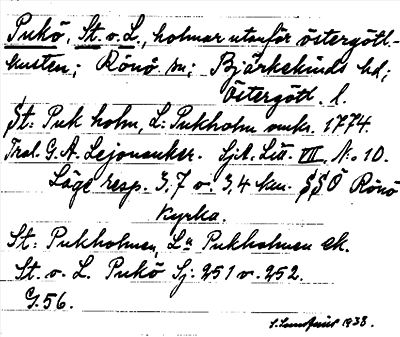 Pukö, St. o. L., holmar utanför östergötl.-
kusten; Rönö sn; Björkekinds hd;
Östergötl. l.
St: Puk holm, L: Pukholm omkr. 1774.
Tral. G. A. Lejonanker. Sjö. Litt. VIII, No 10.
Läge resp. 3,7 o. 3,4 km. SSÖ Rönö
kyrka.
St: Pukholmen, La Pukholmen ek.
St. o. L. Pukö Sj: 251 o. 252.
G. 56.
1933.